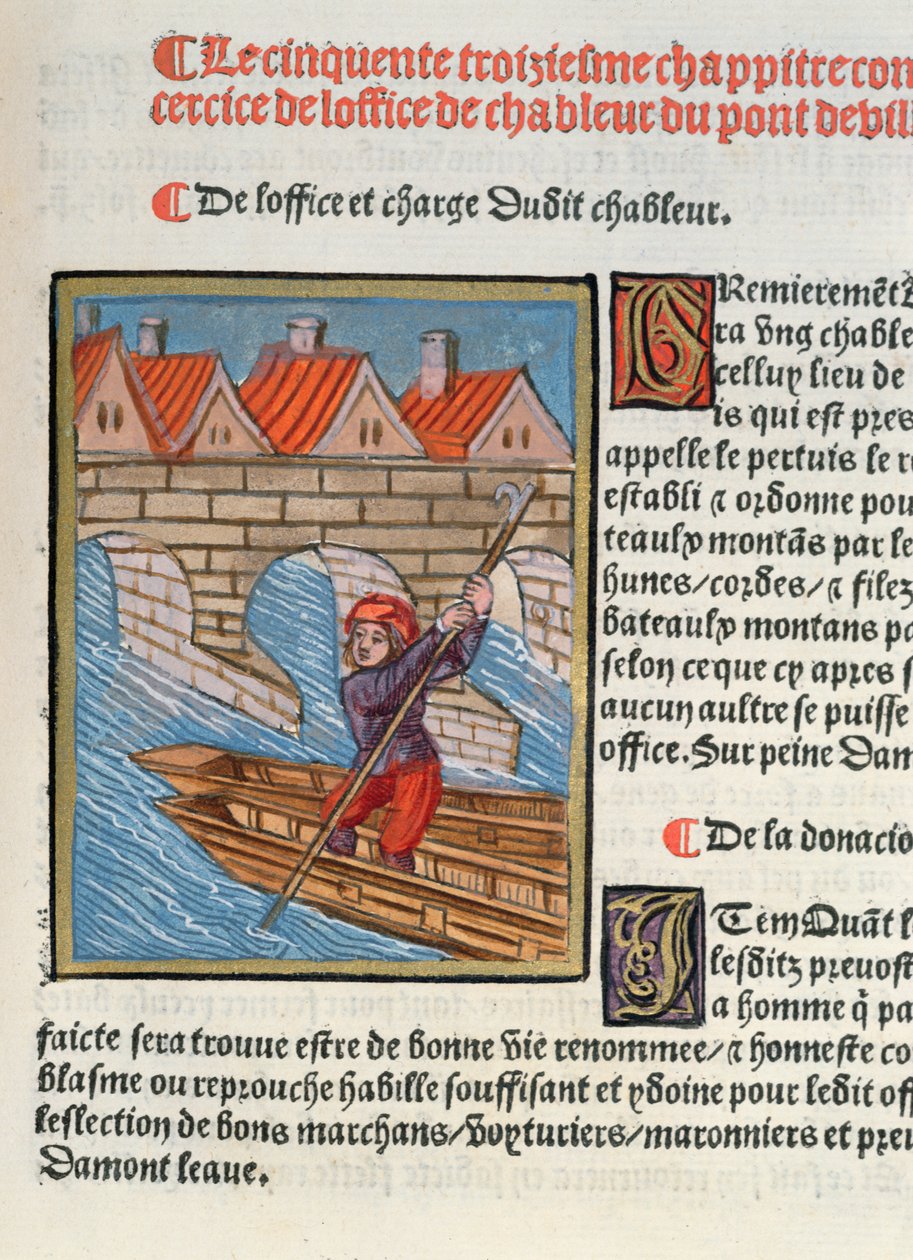 ¶ Le cinquente troiziesme chappitre con
cercice de loffice de chableur du pont de vill
¶ De loffice et charge dudit chableur.
PRemieremēt
ra vng chable
celluy lieu de
is qui est pres
appelle le pertuis le r
establi ⁊ ordonne pou
teaulx montās par le
hunes/cordes/⁊ filez
bateaulx montans pa
selon ce que cy apres s
aucun aultre se puisse
office. Sur peine dam
¶ De la donacio
ITem Quāt l
lesditz preuost
a homme q̄ pa
faicte sera trouue estre de bonne vie renommee/⁊ honneste co
blasme ou reprouche habille souffisant et ydoine pour ledit off
leslection de bons marchans/voyturiers/maronniers et preu
Damont leaue.